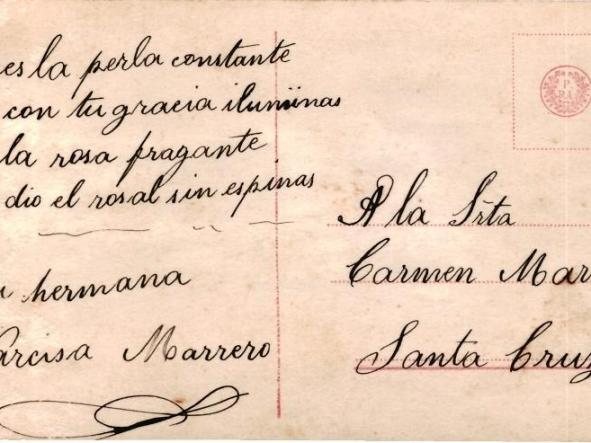 es la perla constante
con tu gracia iluminas
la rosa fragante
dio el rosal sin espinas
hermana
Marrero
A la Srta
Carmen Mar
Santa Cruz